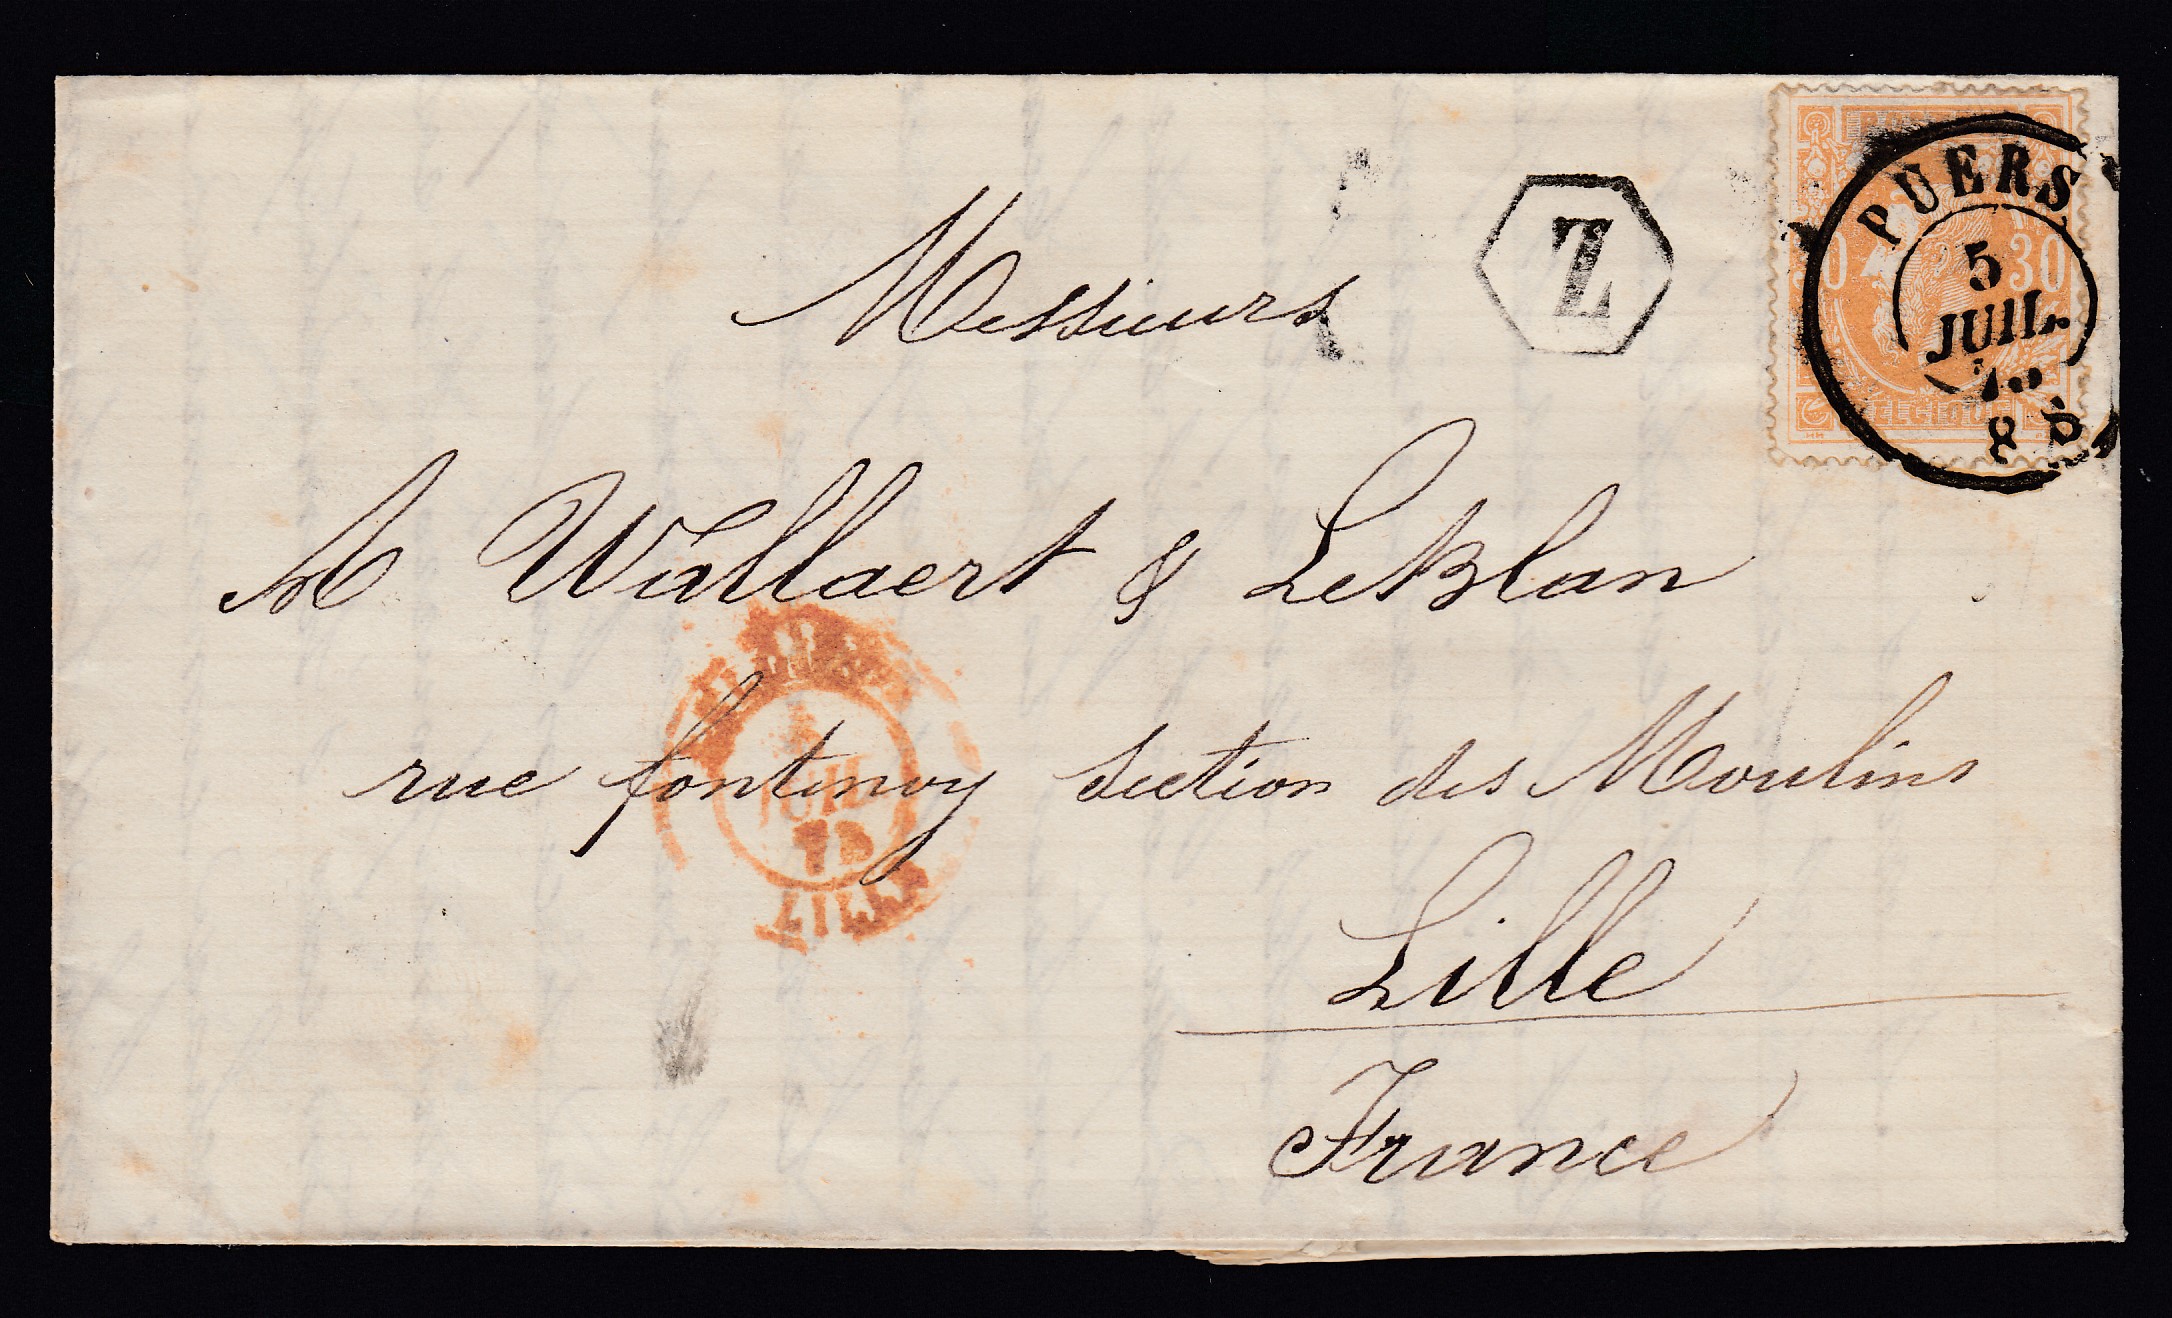 Messieurs
A Wallaert & LeBlan
rue fontenoy Section des Moulins
Lille
France
Z
POSTES
30
BELGIQUE
PUERS
5
JUIL.
8 S
JUIL
LILLE